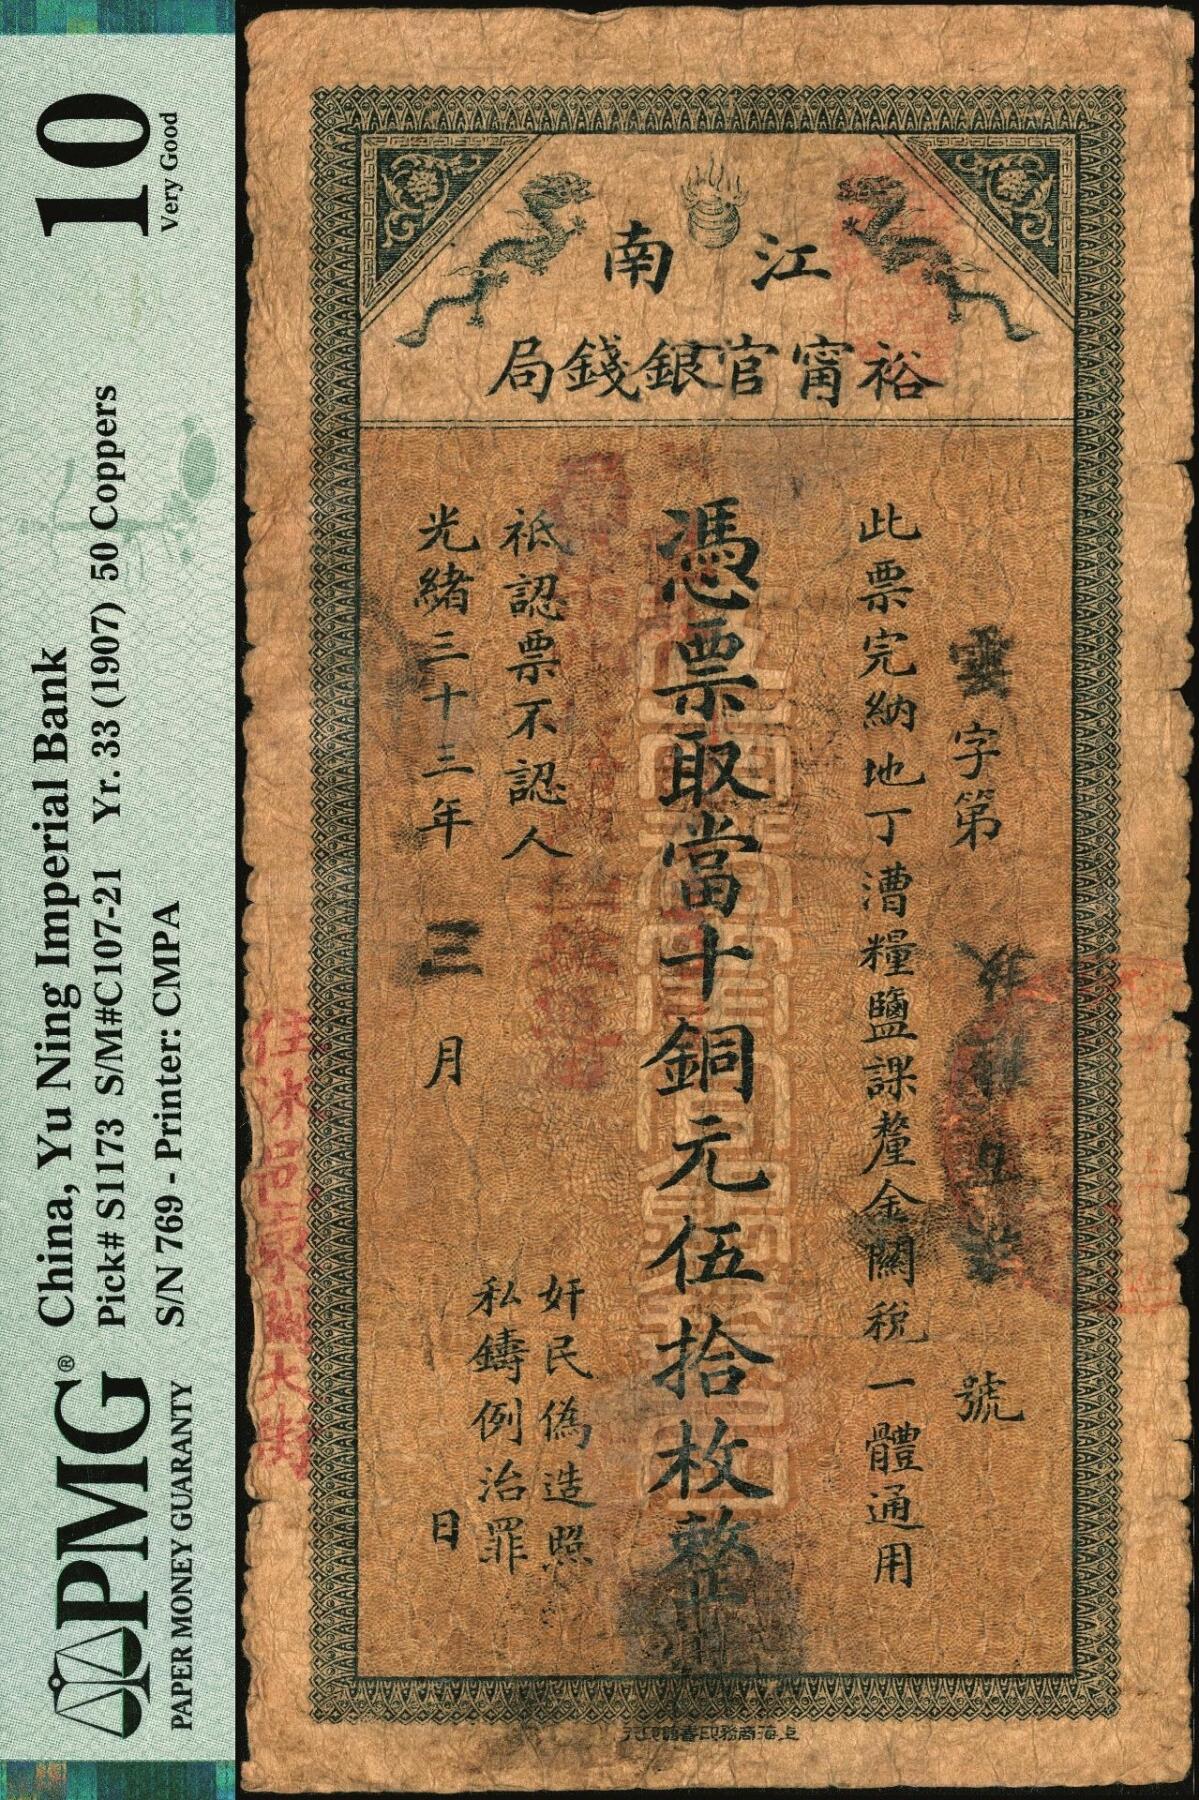 PMG®
PAPER MONEY GUARANTY
China, Yu Ning Imperial Bank
Pick# S1173 S/M#C107-21 Yr. 33 (1907) 50 Coppers
S/N 769 - Printer: CMPA
10
Very Good
江南
裕甯官銀錢局
雲字第
號
此票完納地丁漕糧鹽課釐金關稅一體通用
憑票取當十銅元伍拾枚整
祇認票不認人
奸民偽造照
私鑄例治罪
光緒三十三年三月 日
上海商務印書館印行